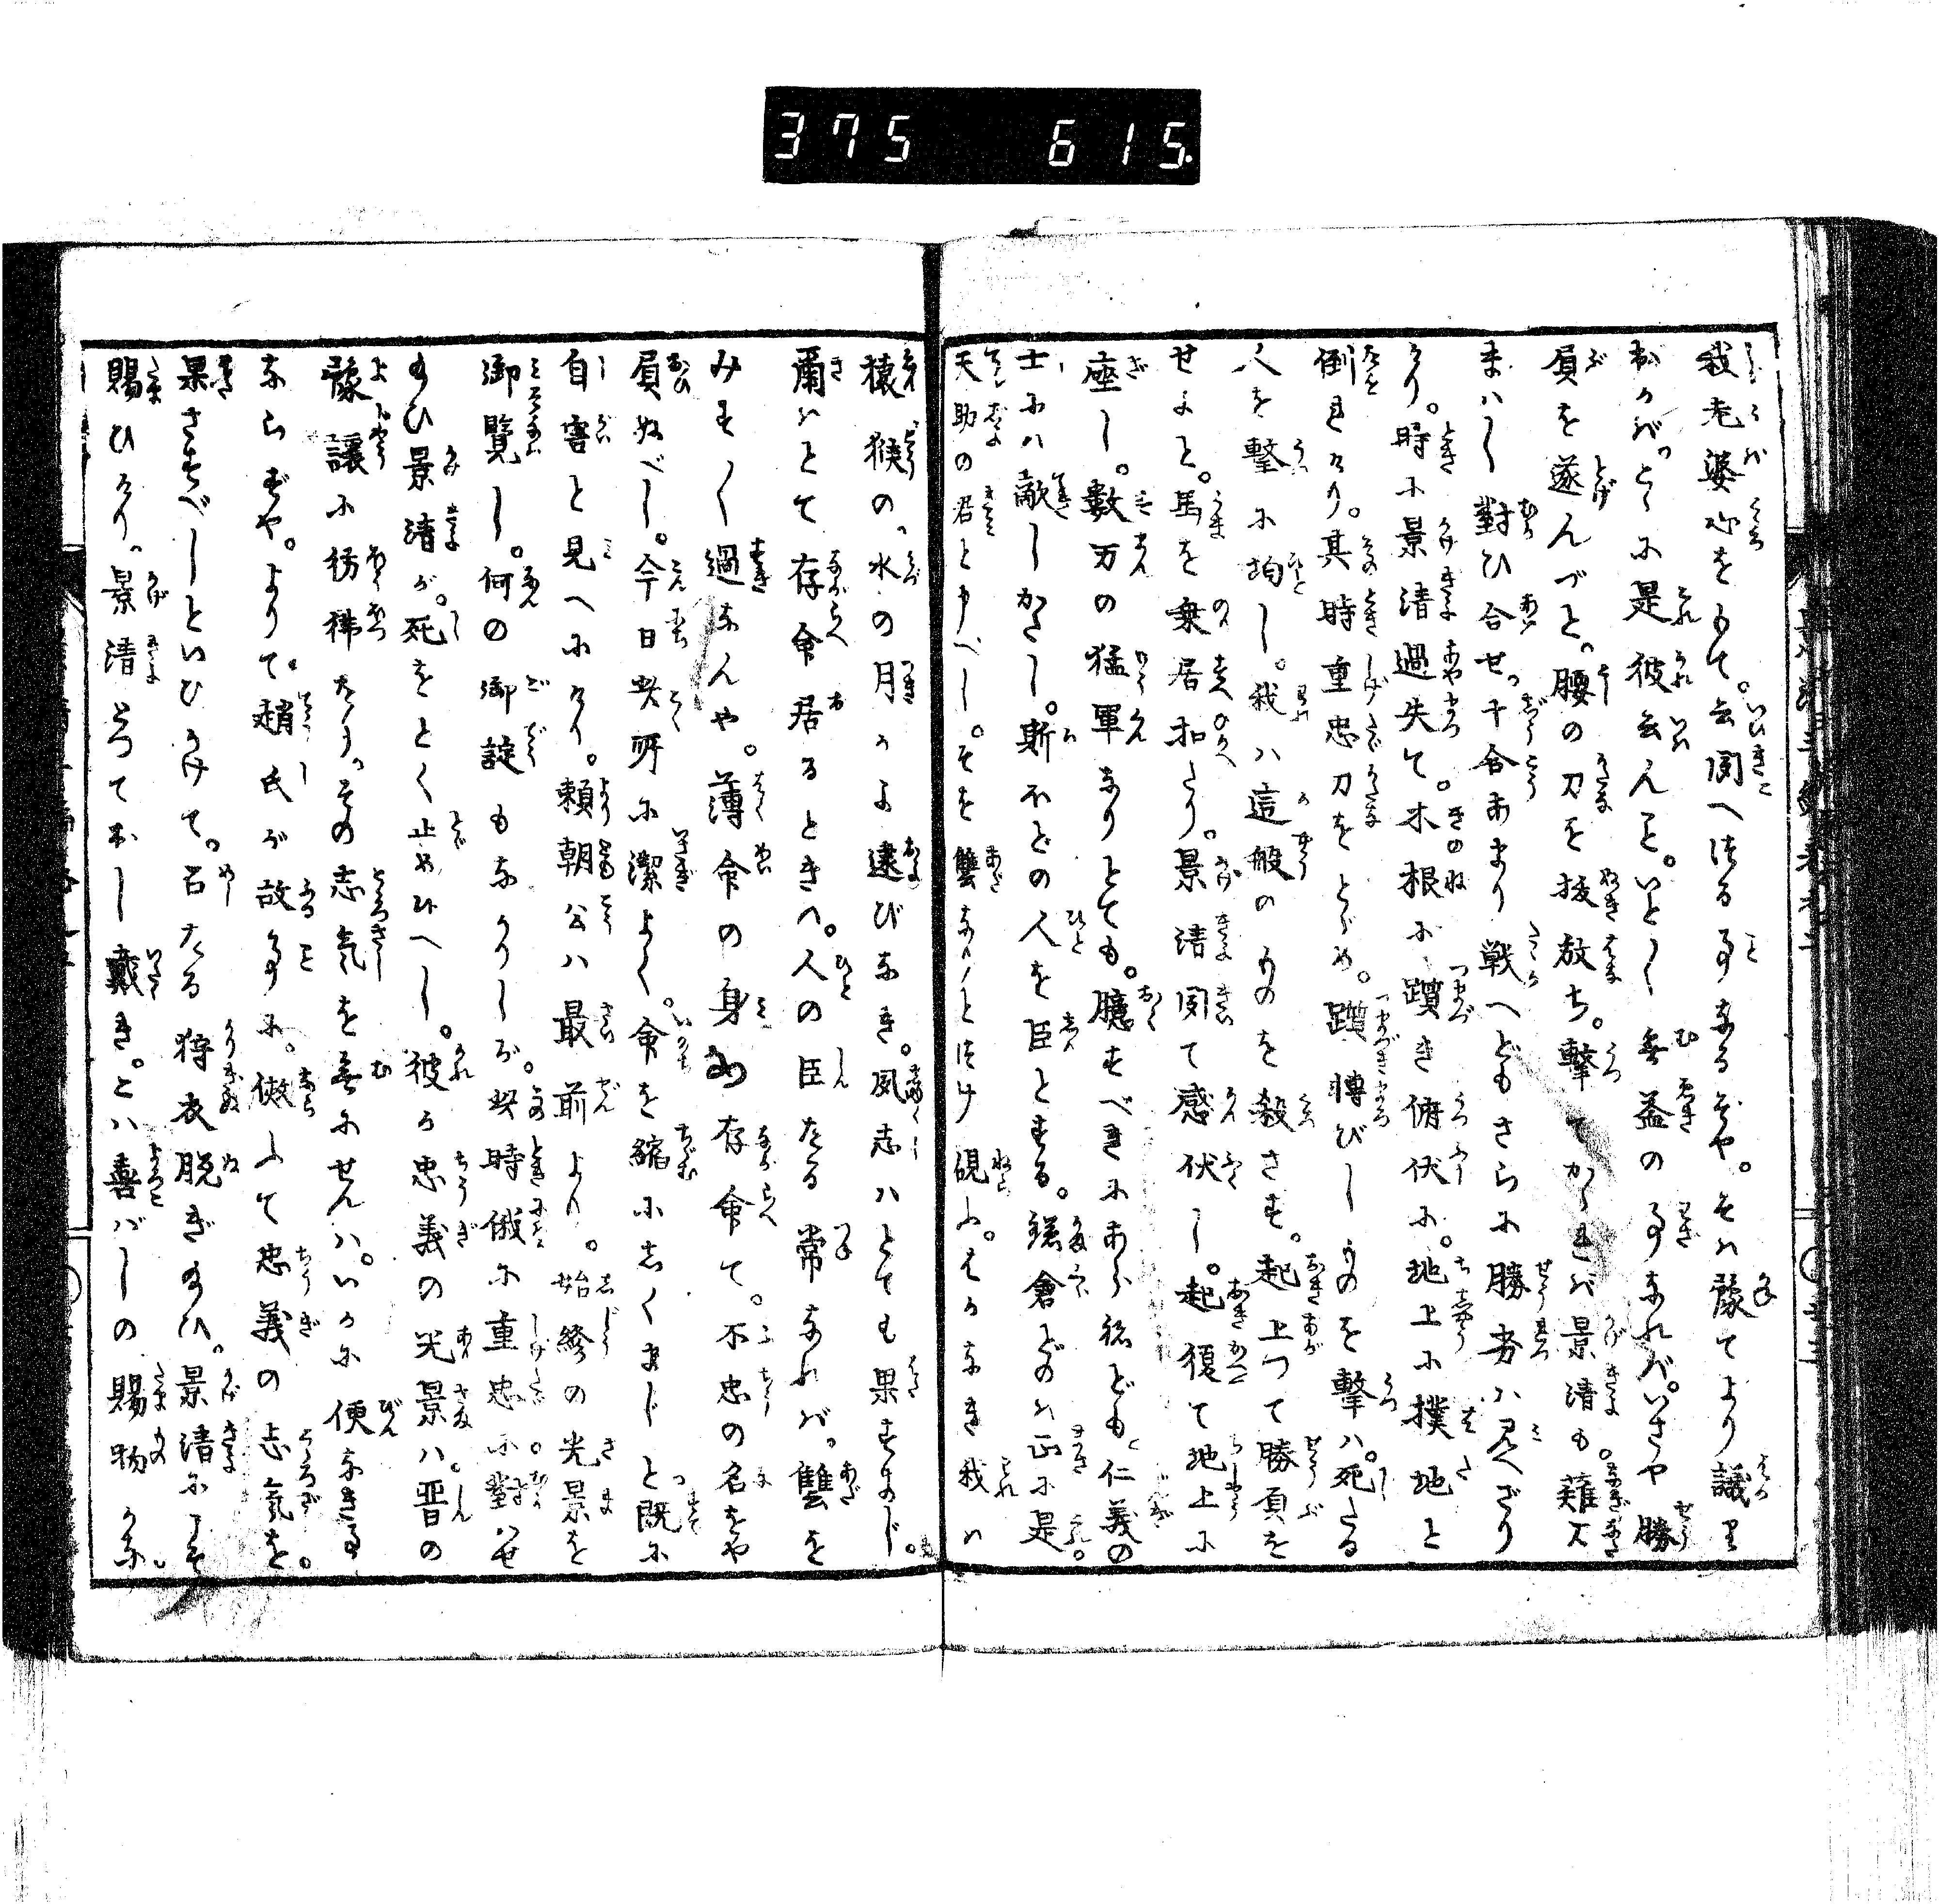 375 615
我老婆心をもて。云聞へ侍る事なるぞや。そは豫てより議り
しかバ。とくに是彼云んを。いと〱無益の事なれバ。いざや勝
負を遂んづと。腰の刀を抜放ち。撃てかゝれバ景清も。薙刀
まハし對ひ合せ。千合あまり戦へどもさらに勝劣ハ見へざり
けり。時に景清過失て。木根に躓き俯伏に。地上に撲地と
倒れけり。其時重忠刀をとゞめ。躓轉びしものを撃ハ。死たる
人を撃に均し。我ハ這般のものを殺さず。起上つて勝負を
せよと。馬を乗居扣たり。景清聞て感伏し。起復て地上に
座し。數万の猛軍なりとても。臆すべきにあらねども。仁義の
士にハ敵しがたし。斯ほどの人を臣とする。鎌倉どのハ正に是。
天助の君と申べし。そを讐なりとつけ覘ふ。はかなき我ハ
猿猴の。水の月かよ逮びなき。夙志ハとても果すまじ。
爾ハとて存命居るときハ。人の臣たる常なれバ。讐を
みす〱過なんや。薄命の身の存命て。不忠の名をや
負ぬべし。今日此所に潔よく。命を縮にしくまじと既に
自害と見へにけり。頼朝公ハ最前より。始終の光景を
御覧し。何の御諚もなかりしが。此時俄に重忠に對ハせ
給ひ景清が。死をとく止めたまへし。彼が忠義の光景ハ。晋の
豫讓に彷彿たり。その志氣を無にせんハ。いかに便なき事
ならずや。よりて。趙氏が故事に。倣ふて忠義の志氣を。
果さすべしといひかけて。召たる狩衣脱ぎ給ひ。景清にこそ
賜ひけり。景清とつておし戴き。こハ喜バしの賜物かな。